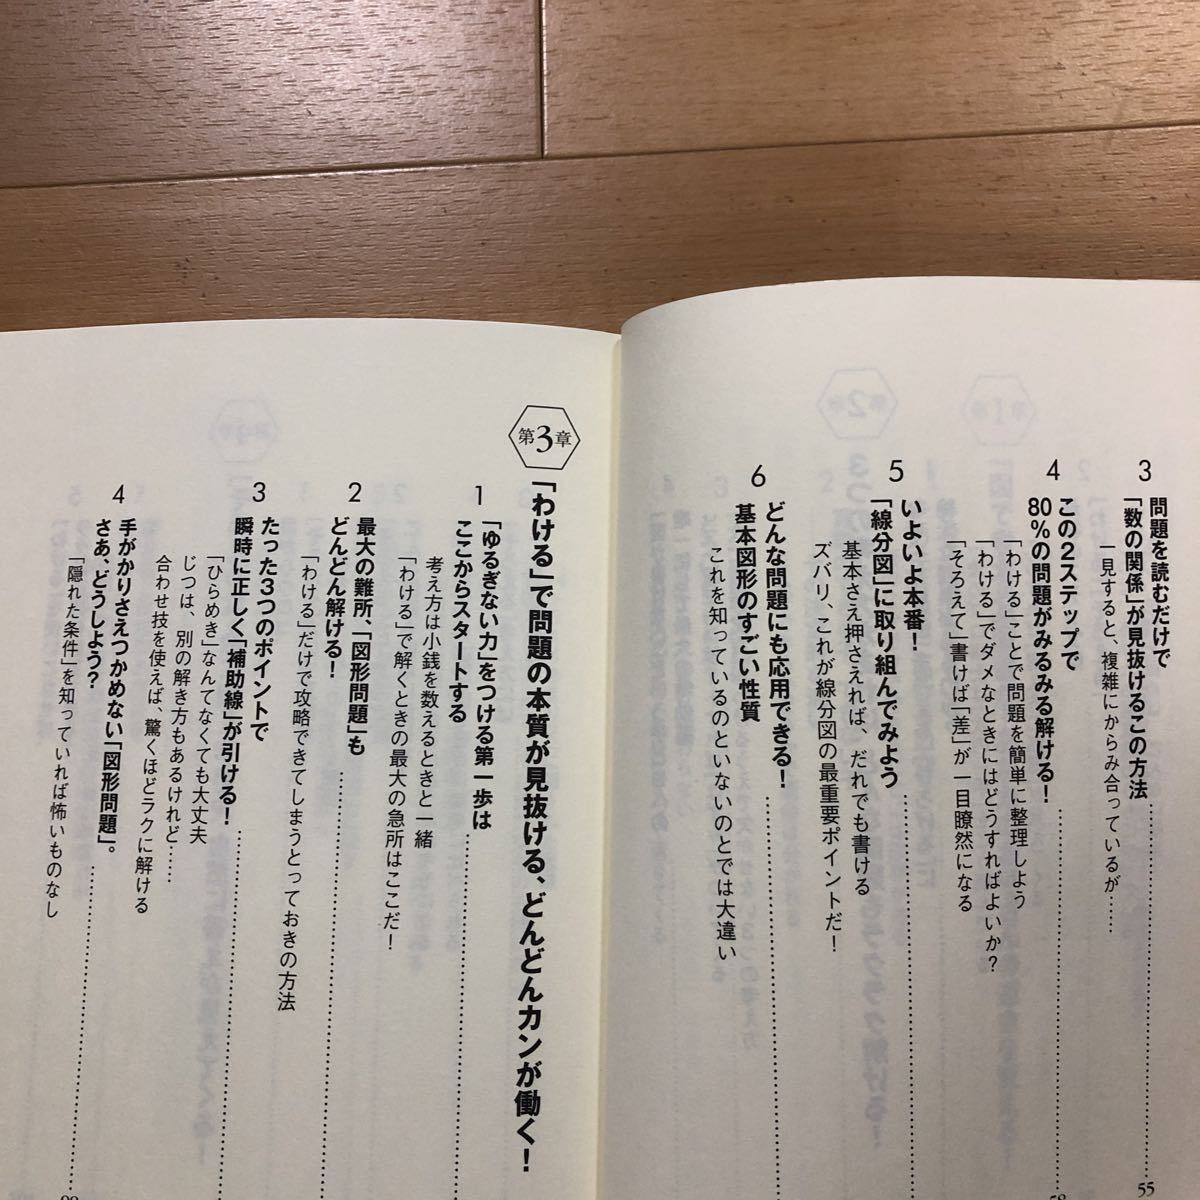 3
問題を読むだけで
「数の関係」が見抜けるこの方法
55
一見すると、複雑にからみ合っているが……
4
この2ステップで
80%の問題がみるみる解ける！
58
「わける」ことで問題を簡単に整理しよう
「わける」でダメなときにはどうすればよいか？
「そろえて」書けば「差」が一目瞭然になる
5
いよいよ本番！
「線分図」に取り組んでみよう
基本さえ押さえれば、だれでも書ける
ズバリ、これが線分図の最重要ポイントだ！
6
どんな問題にも応用できる！
基本図形のすごい性質
これを知っているのといないのとでは大違い
第3章
「わける」で問題の本質が見抜ける、どんどんカンが働く！
1
「ゆるぎない力」をつける第一歩は
ここからスタートする
考え方は小銭を数えるときと一緒
「わける」で解くときの最大の急所はここだ！
2
最大の難所、「図形問題」も
どんどん解ける！
「わける」だけで攻略できてしまうとっておきの方法
3
たった3つのポイントで
瞬時に正しく「補助線」が引ける！
「ひらめき」なんてなくても大丈夫
じつは、別の解き方もあるけれど……
合わせ技を使えば、驚くほどラクに解ける
4
手がかりさえつかめない「図形問題」。
さあ、どうしよう？
「隠れた条件」を知っていれば怖いものなし